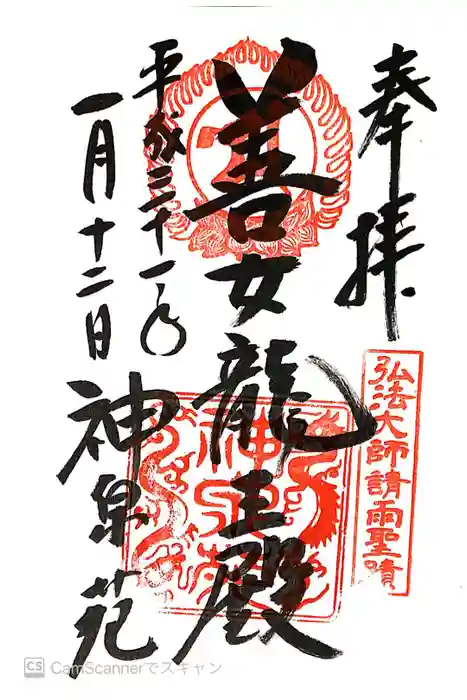 奉拝
弘法大師請雨聖蹟
善女龍王殿
平成三十一年
一月十二日
神泉苑
神泉苑
CS CamScannerでスキャン